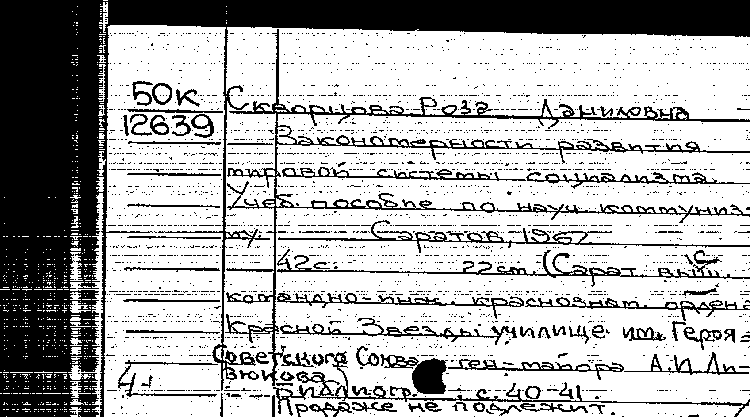 50к
12639
Скворцова Роза Даниловна
Закономерности развития
мировой системы социализма.
Учеб. пособие по науч. коммуниз-
му. Саратов, 1967
42с. 22см. (Сарат. высш.
командно-инж. краснознам. ордена
Красной Звезды училище им. Героя
Советского Союза ген-майора А.И. Ли-
зюкова)
Библиогр.: с. 40-41.
Продаже не подлежит.